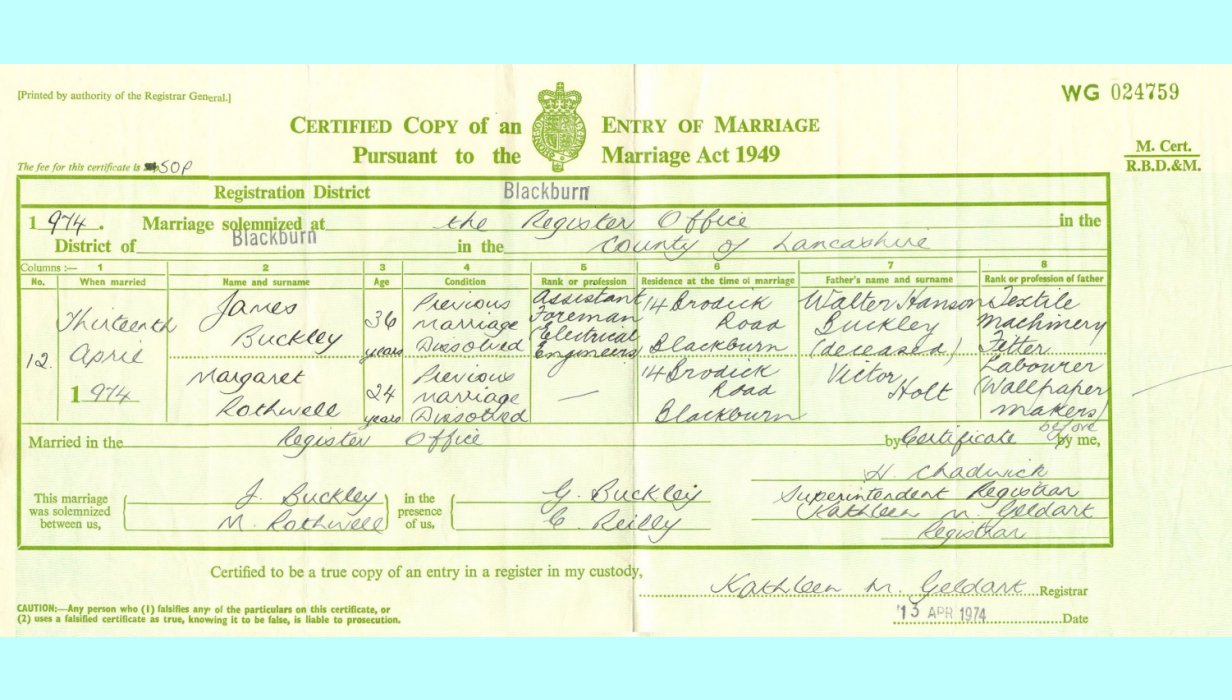 [Printed by authority of the Registrar General.]
WG 024759
CERTIFIED COPY of an ENTRY OF MARRIAGE
Pursuant to the Marriage Act 1949
M. Cert.
R.B.D.&M.
The fee for this certificate is 50p
Registration District Blackburn
1974. Marriage solemnized at the Register Office in the
District of Blackburn in the County of Lancashire
Columns :— 1 2 3 4 5 6 7 8
No. When married Name and surname Age Condition Rank or profession Residence at the time of marriage Father's name and surname Rank or profession of father
12. Thirteenth April 1974
James Buckley
36 years
Previous marriage Dissolved
Assistant Foreman (Electrical Engineers)
14 Brodick Road Blackburn
Walter Hanson Buckley (deceased)
Textile Machinery Fetter
Margaret Rothwell
24 years
Previous marriage Dissolved
—
14 Brodick Road Blackburn
Victor Holt
Labourer (Wallpaper makers)
Married in the Register Office by Certificate before by me,
This marriage was solemnized between us,
J. Buckley
M. Rothwell
in the presence of us,
G. Buckley
C. Reilly
H. Chadwick
Superintendent Registrar
Kathleen M. Geldart
Registrar
Certified to be a true copy of an entry in a register in my custody,
Kathleen M. Geldart Registrar
13 APR 1974 Date
CAUTION:—Any person who (1) falsifies any of the particulars on this certificate, or
(2) uses a falsified certificate as true, knowing it to be false, is liable to prosecution.